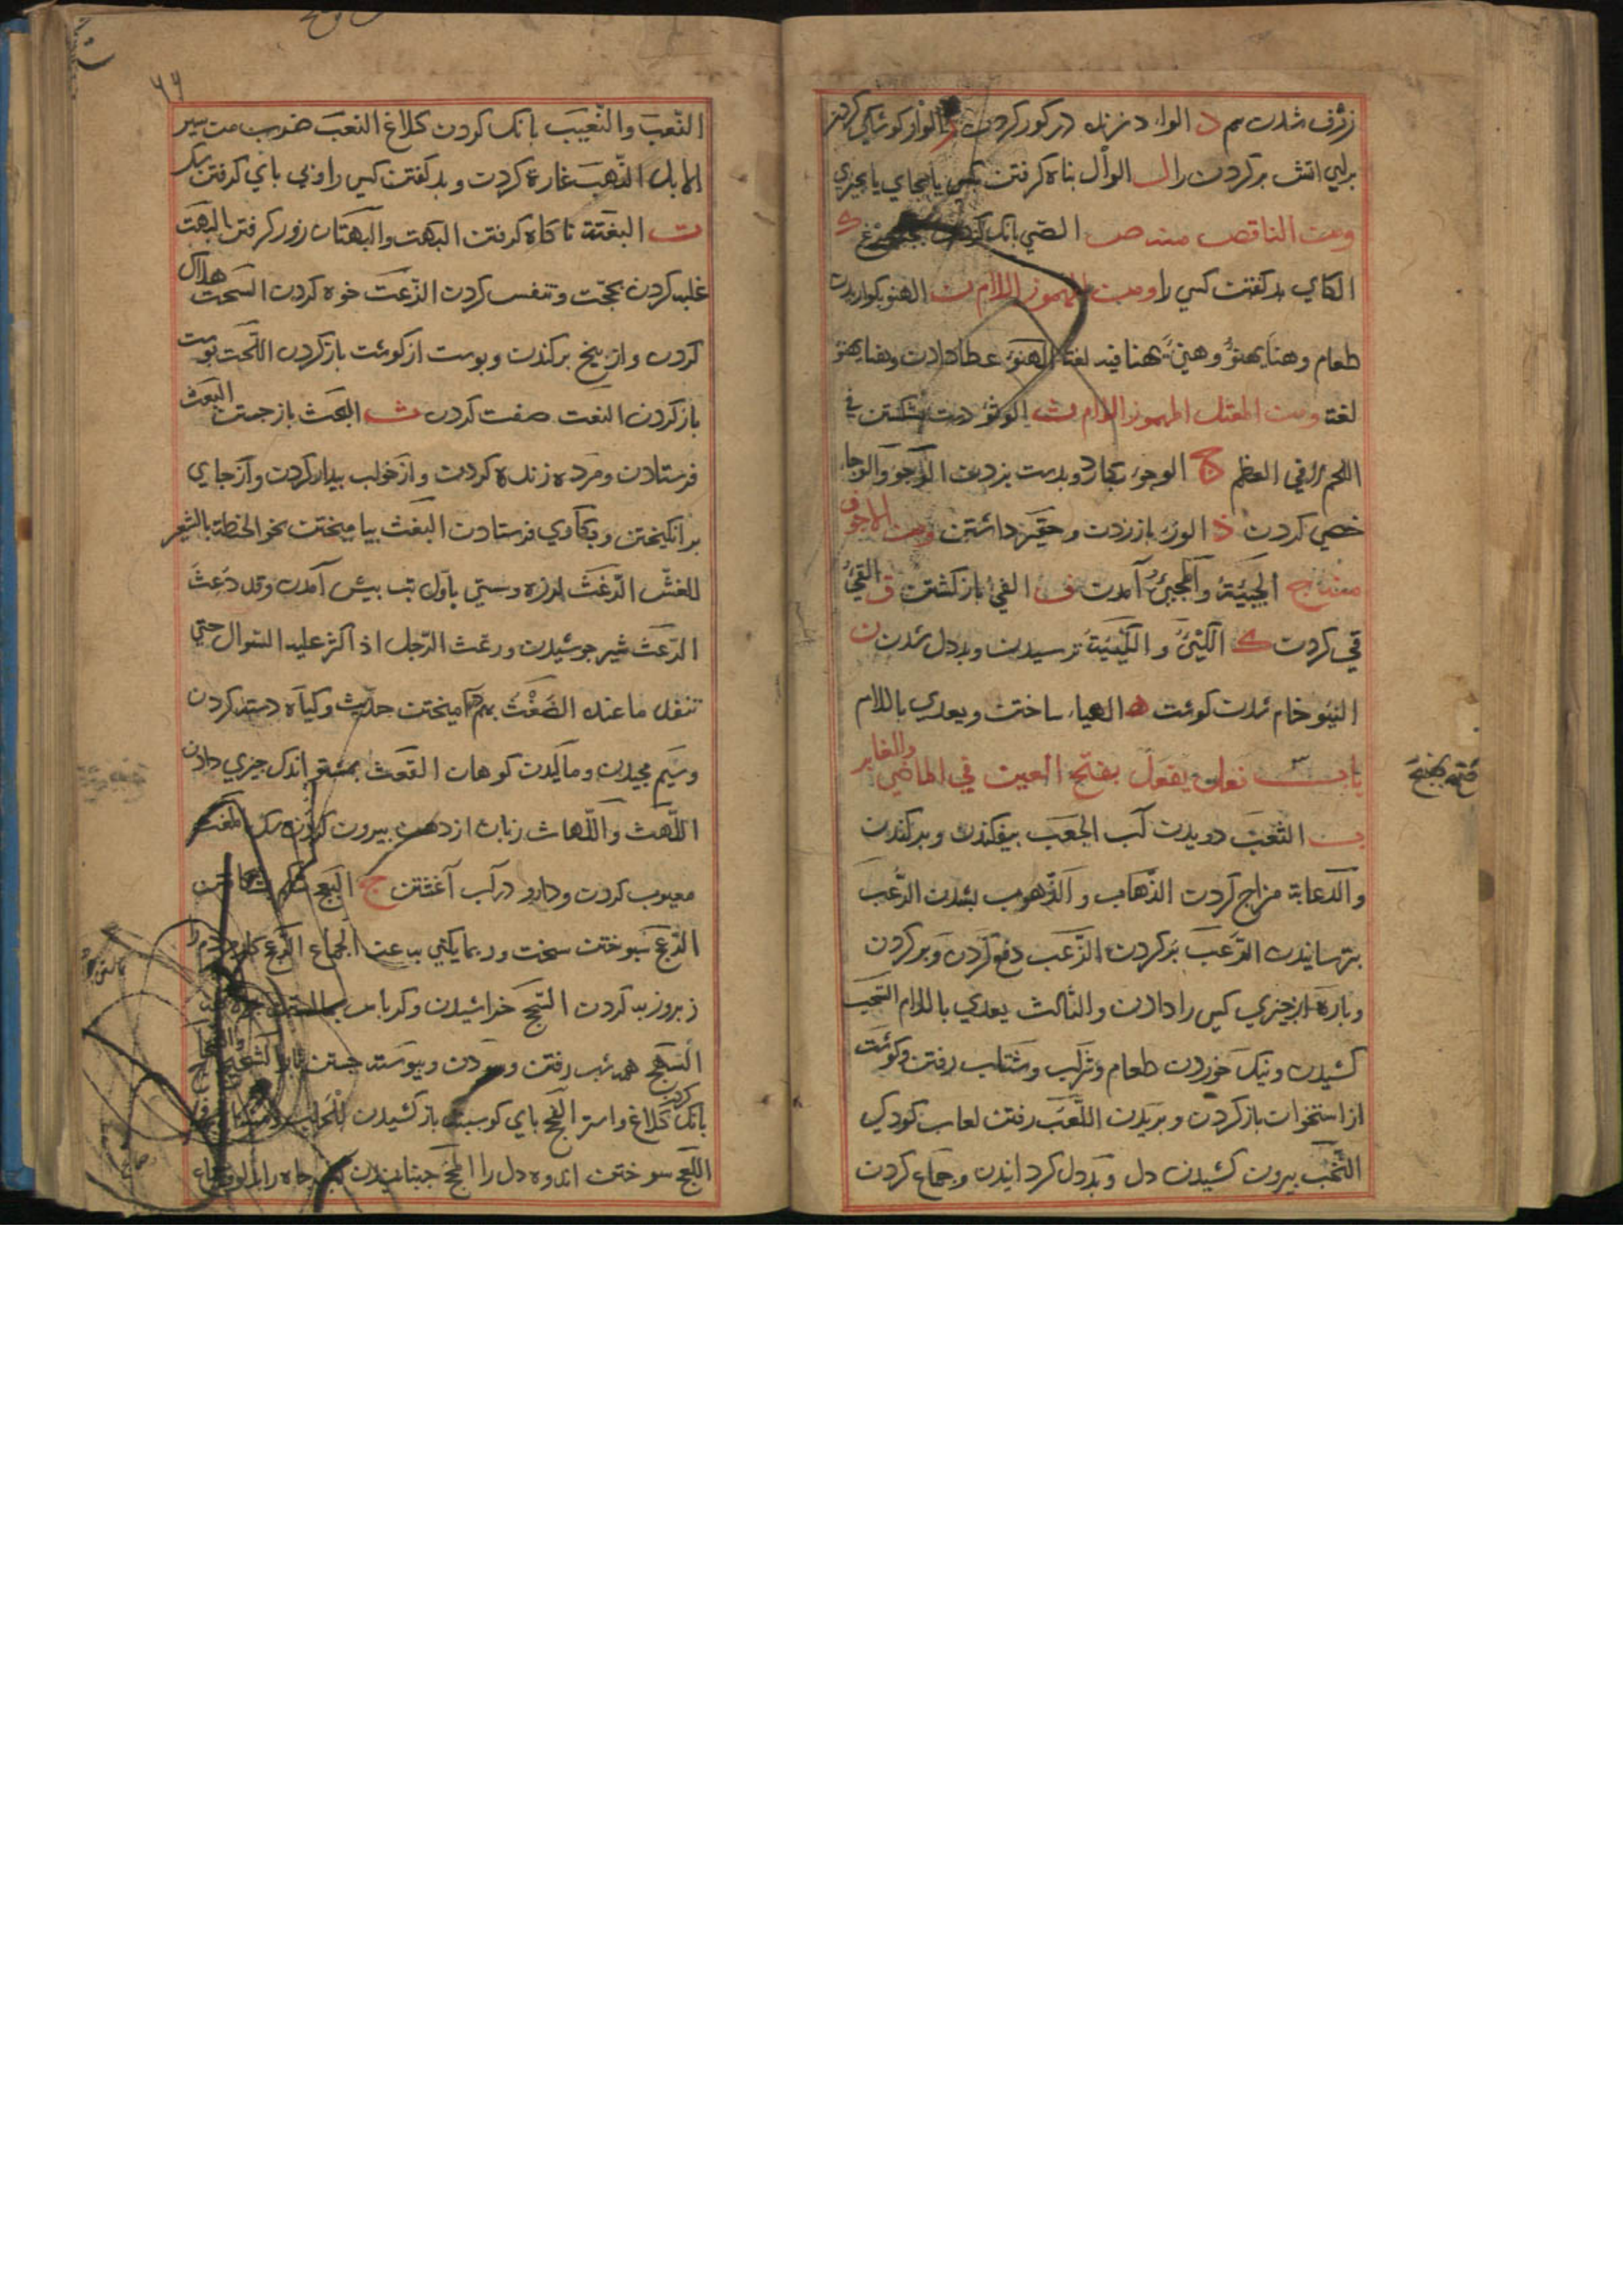 ژرف شدن هم د الواد زنده در کور کردن الوار کو شاکی کردن
برای اتش بر کردن را ل الوأل بناه کرفتن بکسی یا بجای یا بجیزی
ومن الناقص منه ص الصئي بانک کردن مرغ ك
الكاي بد کفتن کسی را ومن المهموز اللام ن الهنو کواریدن
طعام وهنأ يهنؤ وهنئ يهنأ فيه لغة الهنؤ عطا دادن وهنا يهنؤ
لغة ومن المعتل المهموز اللام ث الوثؤ دست شکستن في
اللحم لا في العظم ج الوجؤ بکارد وبدست بزدن الوجؤ والوجاء
خصي کردن ذ الوذء بازردن وحقير داشتن ومن الاجوف
منه ج الجيئة والمجيئ آمدن ف الفيء بازکشتن ق القيئ
قي کردن ك الكيئ والكيئية ترسیدن وبددل شدن ن
النيئو خام شدن کوشت ه الهياء ساختن ويعدي باللام
باب فعل يفعل بفتح العين في الماضي والغابر
فتح بفتح
ب الثعب دویدن آب الجعب بیفکندن وبرکندن
والدعابة مزاح کردن الذهاب والذهوب بشدن الرعب
بترسانیدن الرعب پر کردن الزعب دفع کردن وپر کردن
وباره از جیزی کسی را دادن والثالث يعدي باللام السحب
کشیدن ونیک خوردن طعام وشراب وشتاب رفتن وکوشت
از استخوان بازکردن وبریدن اللعب رفتن لعاب کودک
النخب بیرون کشیدن دل وبددل کردانیدن وجماع کردن
٦٦
النعب والنعيب بانک کردن کلاغ النعب ضرب من سير
الابل النهب غارة کردن وبد کفتن کسی را وپی بای کرفتن سک
ت البغتة ناکاه کرفتن البهت والبهتان زور کرفتن البهت
غلبه کردن بحجت وتنفس کردن الذعت خوه کردن السحت هلاک
کردن واز بیخ برکندن وبوست از کوشت بازکردن اللحت بوست
بازکردن النعت صفت کردن ث البحث بازجستن البعث
فرستادن ومرده زنده کردن واز خواب بیدار کردن واز جای
برانکیختن وبکاوی فرستادن البغث بیامیختن نحو الحنطة بالشعير
للغش الدعث لرزه وسستی باول تب بیش آمدن وقد دعث
الرغث شیر جوشیدن ورغث الرجل اذا اكثر عليه السوال حتي
تنفد ما عنده الضغث بهم آمیختن حدیث وکیاه دسته کردن
وسیم بیجیدن ومالیدن کوهان القعث بمشتی اندک جیزی دادن
اللهث واللهاث زبان از دهن بیرون کردن سک المغث
معیوب کردن ودارو در آب آغشتن ج البعج شکم شکافتن
الدعج سبوختن سخت وربما يكني به عن الجماع
زبر وزبر کردن السحج خراشیدن وکرباس
السهج همه شب رفتن وسودن وبیوسته جستن باد الشحيج
بانک کردن کلاغ واستر بای کوسبند باز کشیدن
اللعج سوختن اندوه دل را المخج جنبانیدن